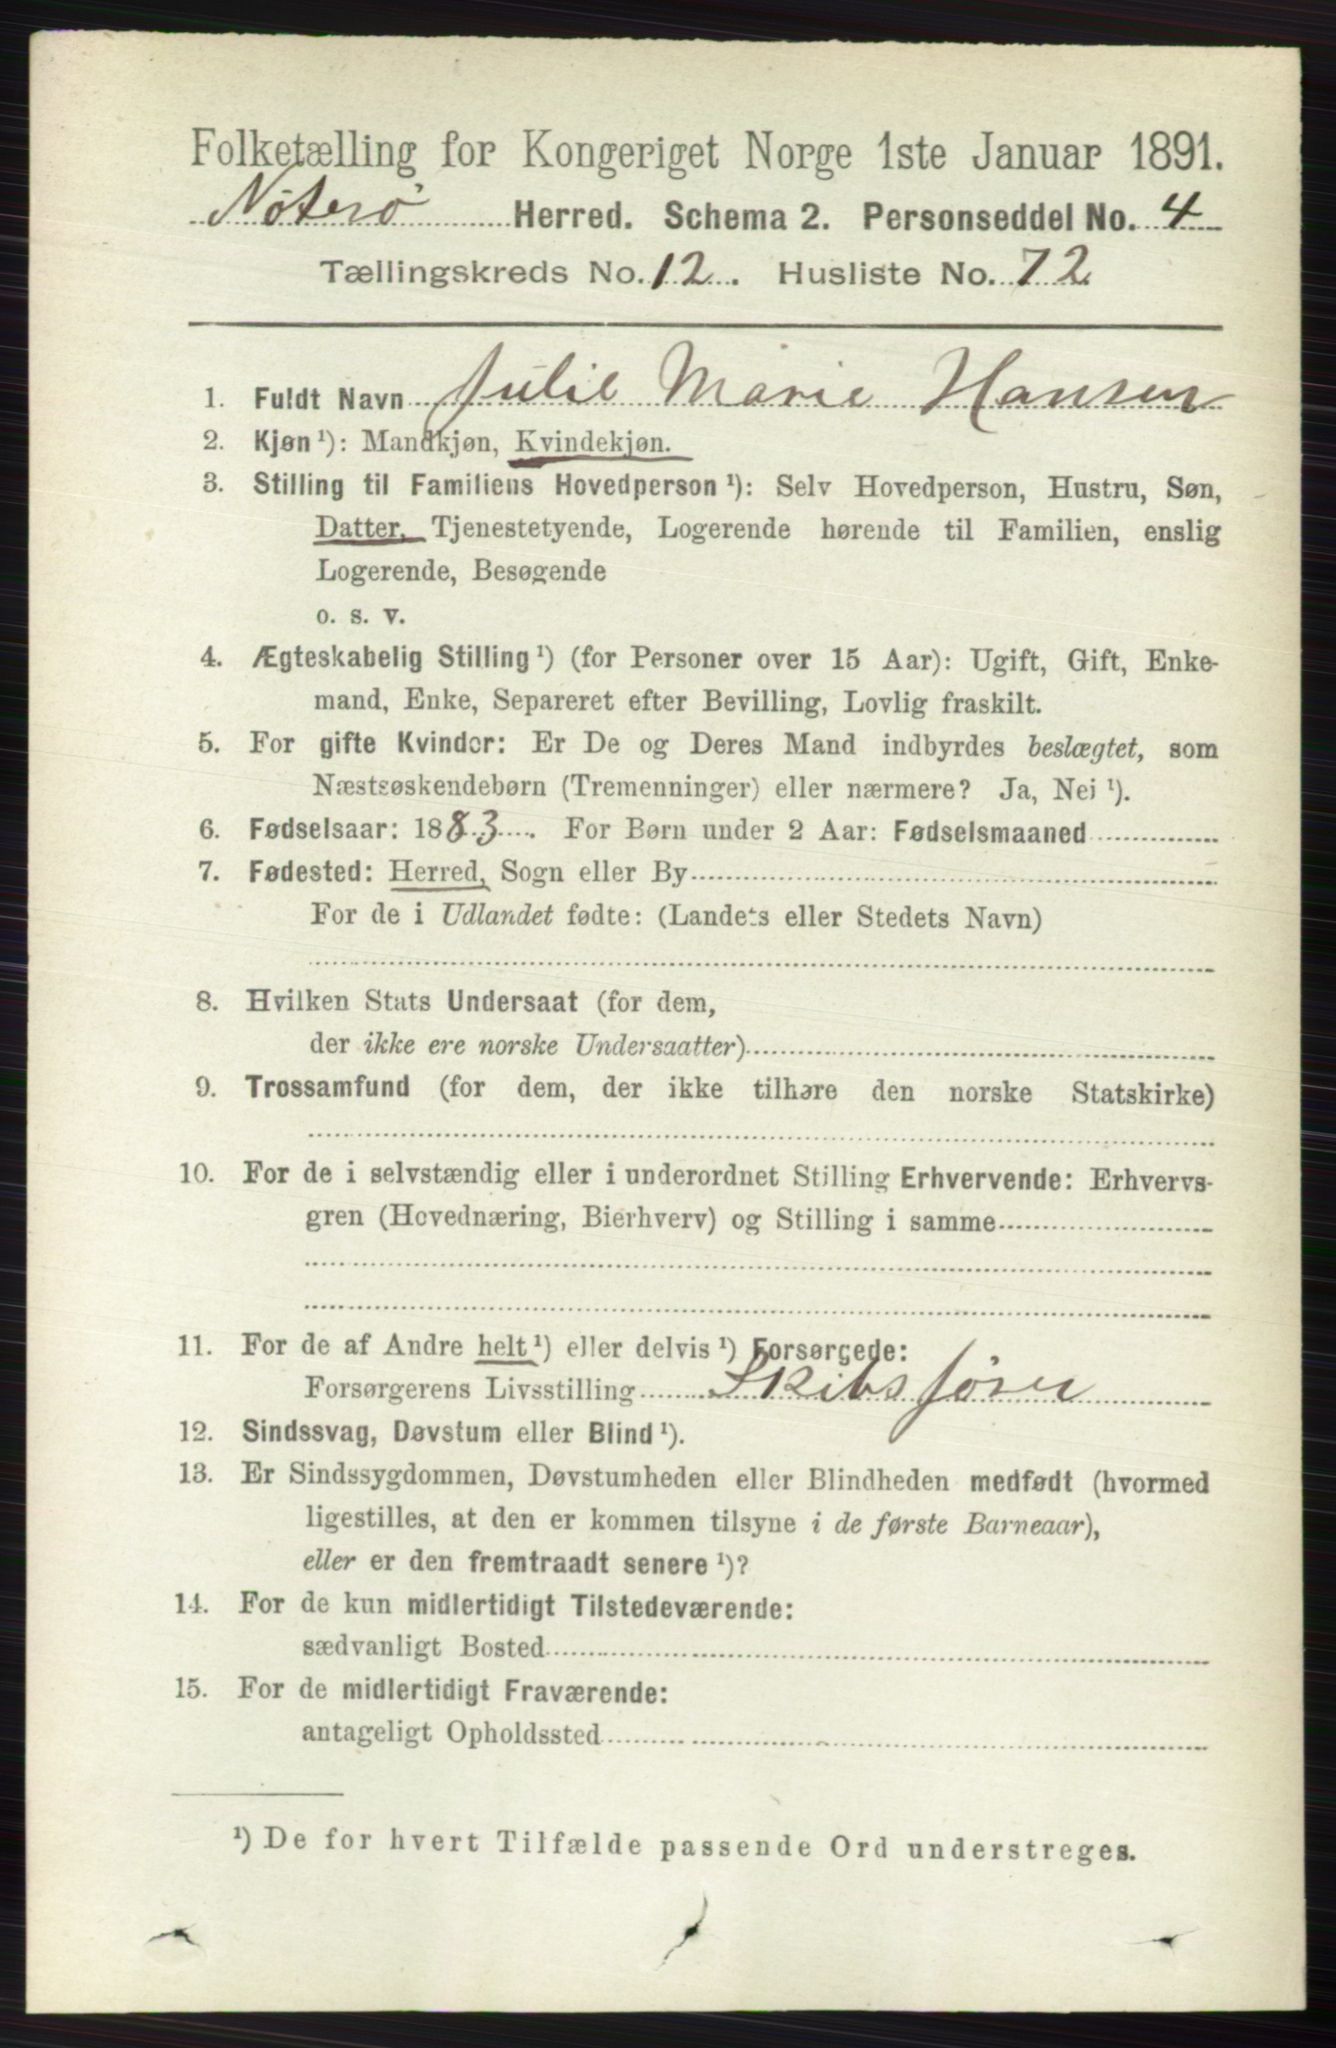 Folketælling for Kongeriget Norge 1ste Januar 1891.
Nøterø Herred. Schema 2. Personseddel No. 4
Tællingskreds No. 12. Husliste No. 72
1. Fuldt Navn Julie Marie Hansen
2. Kjøn ¹): Mandkjøn, Kvindekjøn.
3. Stilling til Familiens Hovedperson ¹): Selv Hovedperson, Hustru, Søn,
Datter, Tjenestetyende, Logerende hørende til Familien, enslig
Logerende, Besøgende
o. s. v.
4. Ægteskabelig Stilling ¹) (for Personer over 15 Aar): Ugift, Gift, Enke-
mand, Enke, Separeret efter Bevilling, Lovlig fraskilt.
5. For gifte Kvinder: Er De og Deres Mand indbyrdes beslægtet, som
Næstsøskendebørn (Tremenninger) eller nærmere? Ja, Nei ¹).
6. Fødselsaar: 1883. For Børn under 2 Aar: Fødselsmaaned
7. Fødested: Herred, Sogn eller By
For de i Udlandet fødte: (Landets eller Stedets Navn)
8. Hvilken Stats Undersaat (for dem,
der ikke ere norske Undersaatter)
9. Trossamfund (for dem, der ikke tilhøre den norske Statskirke)
10. For de i selvstændig eller i underordnet Stilling Erhvervende: Erhvervs-
gren (Hovednæring, Bierhverv) og Stilling i samme
11. For de af Andre helt ¹) eller delvis ¹) Forsørgede:
Forsørgerens Livsstilling Skibsfører
12. Sindssvag, Døvstum eller Blind ¹).
13. Er Sindssygdommen, Døvstumheden eller Blindheden medfødt (hvormed
ligestilles, at den er kommen tilsyne i de første Barneaar),
eller er den fremtraadt senere ¹)?
14. For de kun midlertidigt Tilstedeværende:
sædvanligt Bosted
15. For de midlertidigt Fraværende:
antageligt Opholdssted
¹) De for hvert Tilfælde passende Ord understreges.